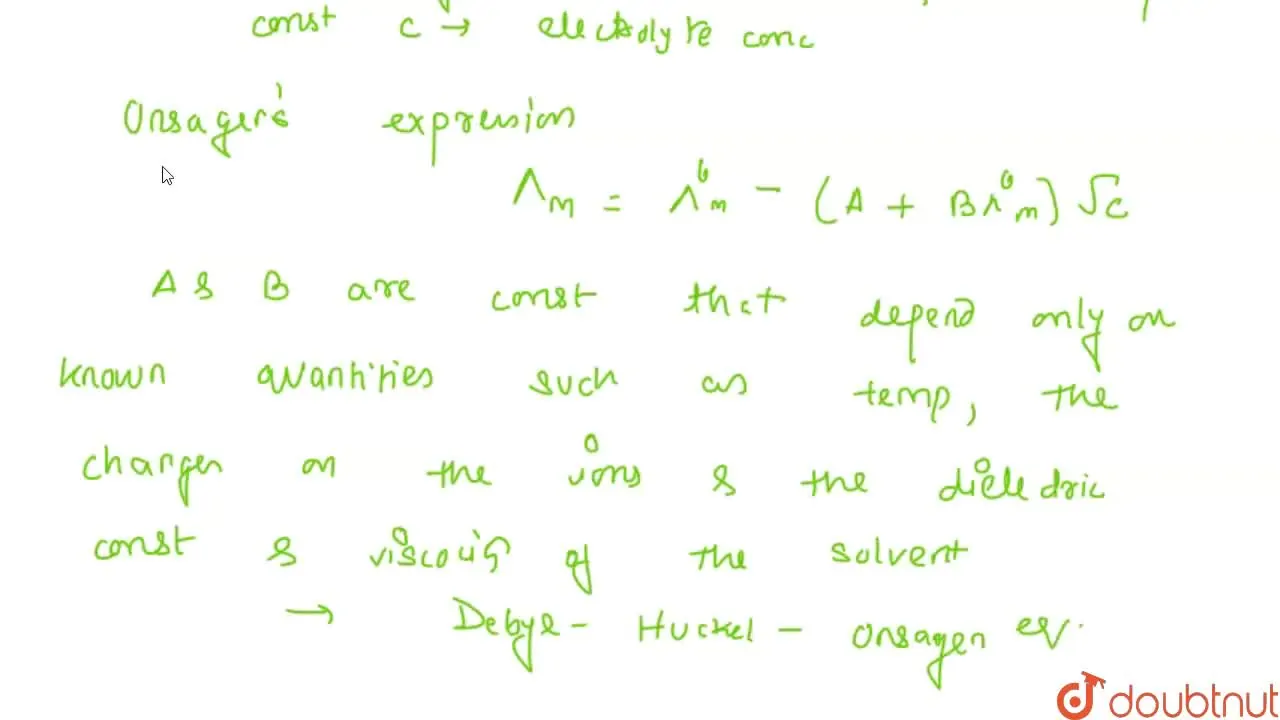 const c → electrolyte conc
Onsager's expression
Λm = Λ°m - (A + BΛ°m) √c
A & B are const that depend only on
known quantities such as temp, the
charges on the ions & the dielectric
const & viscosity of the solvent
→ Debye - Huckel - Onsager eq.
doubtnut